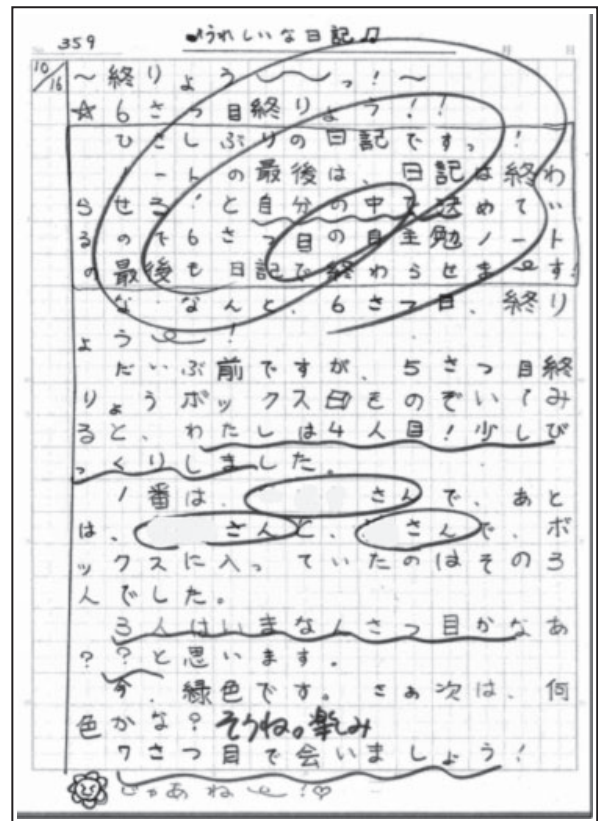 359
うれしいな日記♫
10/16
～終りよう～～っ！～
☆６さつ目終りよう！！
ひさしぶりの日記です。！
ノートの最後は、日記は終わ
らせる！と自分の中で決めてい
るので６さつ目の自主勉ノート
の最後も日記で終わらせまーす！
な、なんと、６さつ目、終り
ょう～！
だいぶ前ですが、５さつ目終
りょうボックス的をのぞいてみ
ると、わたしは４人目！少しび
っくりしました。
１番は、さんで、あと
は、さんと、さんで、ボ
ックスに入っていたのはその３
人でした。
３人はいまなんさつ目かなあ
？？と思います。
今、緑色です。さぁ次は、何
色かな？そうね。楽しみ
７さつ目で会いましょう！
じゃあねー！♡